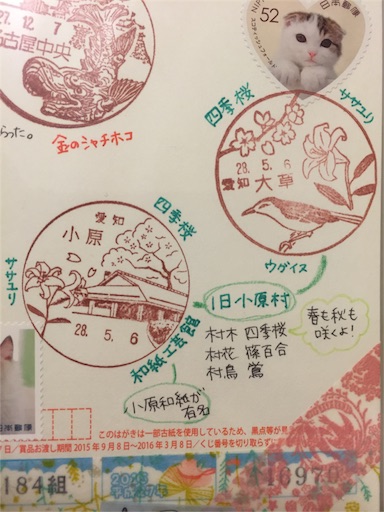 27.12.7
名古屋中央
52
日本郵便
らった。
金のシャチホコ
四季桜
ササユリ
28.5.6
愛知
大草
ウグイス
愛知
小原
四季桜
ササユリ
28.5.6
和紙工芸館
旧小原村
村木 四季桜
村花 篠百合
村鳥 鶯
春も秋も
咲くよ!
小原和紙が
有名
日本郵便
このはがきは一部古紙を使用しているため、黒点等が見
賞品お渡し期間 2015年9月8日〜2016年3月8日/くじ番号を切り取らずに
184組